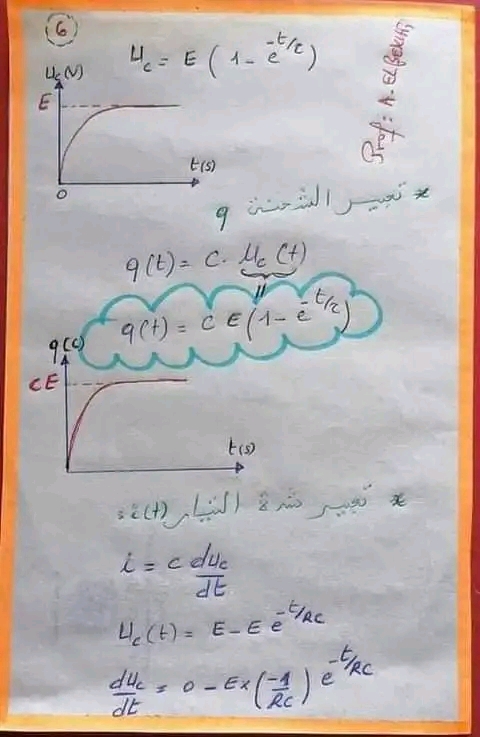 6
u_c = E ( 1 - e^{-t/τ} )
Prof: A. ELBEKRI
u_c(V)
E
t(s)
0
* تعبير الشحنة q
q(t) = C. u_c (t)
=
q(t) = C E ( 1 - e^{-t/τ} )
q(C)
CE
t(s)
* تعبير شدة التيار i(t) :
i = C du_c/dt
u_c(t) = E - E e^{-t/RC}
du_c/dt = 0 - E × (-1/RC) e^{-t/RC}